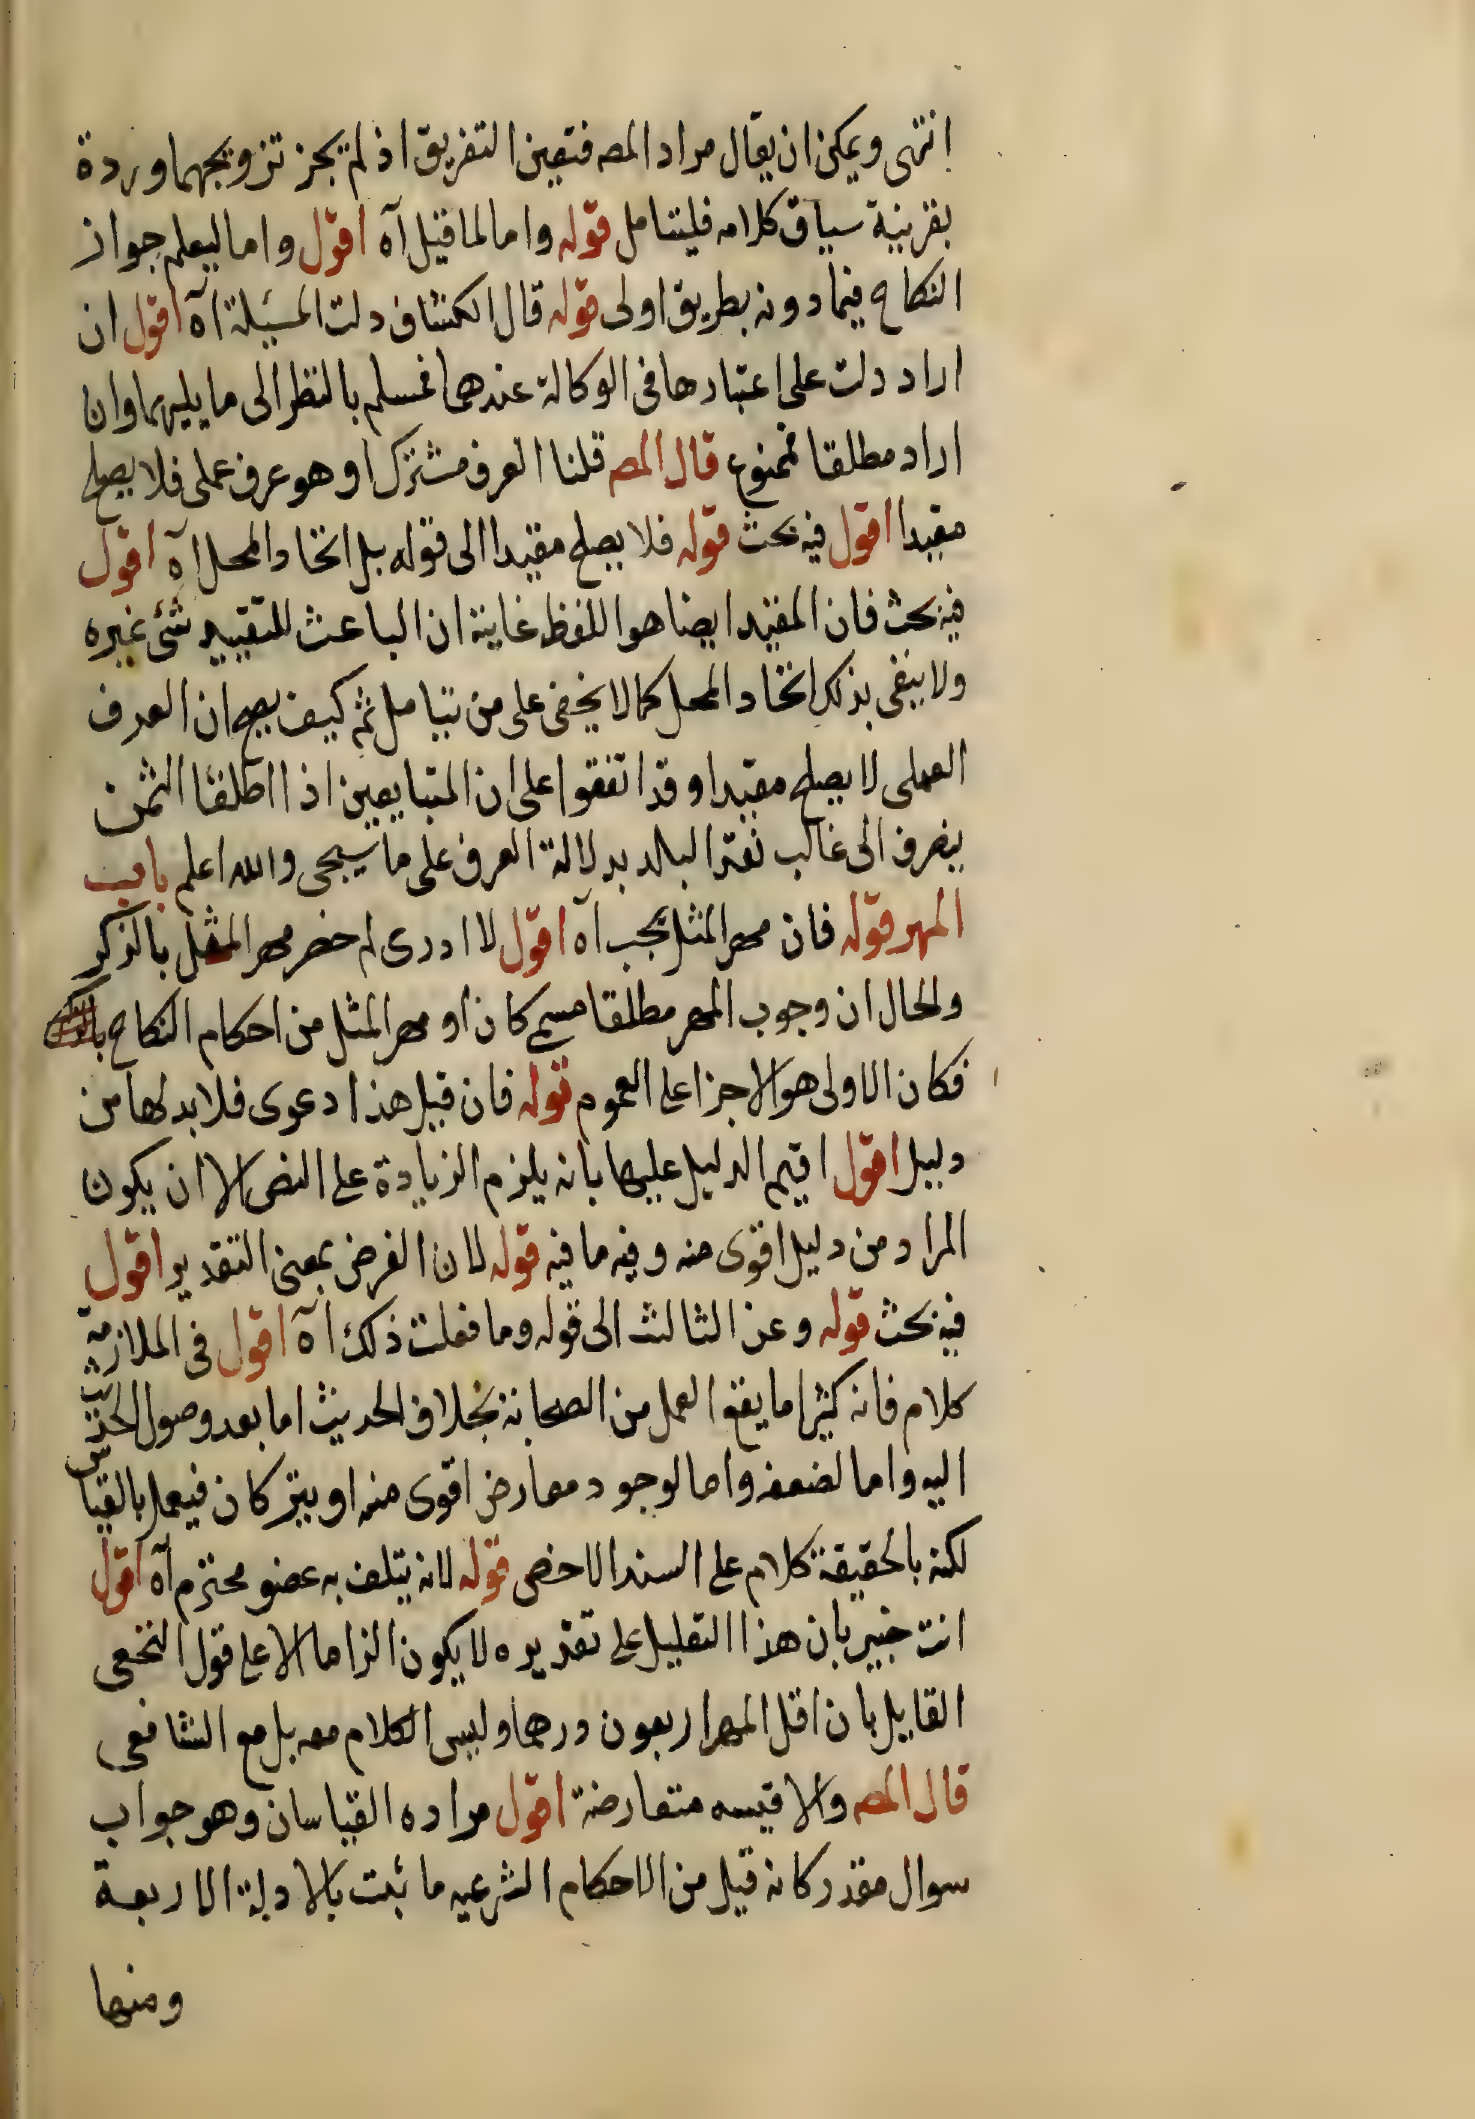 انتهى ويمكن ان يقال مراد المصه فتعين التفريق اذ لم يجز تزويجهما وردة
بقرينة سياق كلامه فليتامل قوله واما لما قيل آه اقول واما ليعلم جواز
النكاح فيما دونه بطريق اولى قوله قال الكشاف دلت المسئيلة آه اقول ان
اراد دلت على اعتبارها فى الوكالة عندهما فمسلم بالنظر الى ما يليهما وان
اراد مطلقا فممنوع قال المصه قلنا العرف مشترك او هو عرف عملى فلا يصلح
مقيدا اقول فيه بحث قوله فلا يصلح مقيدا الى قوله بل اتحاد المحل آه اقول
فيه بحث فان المقيد ايضا هو اللفظ غاية ان الباعث للتقييد شئ غيره
ولا ينفى بذلك اتحاد المحل كما لا يخفى على من يتامل ثم كيف يصح ان العرف
العملى لا يصلح مقيدا وقد اتفقوا على ان المتبايعين اذا اطلقا الثمن
ينصرف الى غالب نقد البلد بدلالة العرف على ما سيجى والله اعلم باب
المهر قوله فان مهر المثل يجب آه اقول لا ادرى لم خص مهر المثل بالذكر
والحال ان وجوب المهر مطلقا مسمى كان او مهر المثل من احكام النكاح
فكان الاولى هو الاجرا على العموم قوله فان قيل هذا دعوى فلا بد لها من
دليل اقول اقيم الدليل عليها بانه يلزم الزيادة على النص الا ان يكون
المراد من دليل اقوى منه وفيه ما فيه قوله لان الفرض بمعنى التقدير اقول
فيه بحث قوله وعن الثالث الى قوله وما فعلت ذلك آه اقول فى الملازمة
كلام فانه كثيرا ما يقع العمل من الصحابة بخلاف الحديث اما بعد وصول الحديث
اليه واما لضعفه واما لوجود معارض اقوى منه او بتركان فيعمل بالقياس
لكنه بالحقيقة كلام على السند الاخص قوله لانه يتلف به عضو محترم آه اقول
انت خبير بان هذا التعليل على تقديره لا يكون الزاما الا على قول النخعى
القايل بان اقل المهر اربعون درهما وليس الكلام معه بل مع الشافعى
قال المصه والاقيسه متعارضة اقول مراده القياسان وهو جواب
سوال مقدر كانه قيل من الاحكام الشرعيه ما ثبت بالادلة الاربعة
ومنها